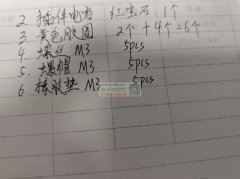 2. 插件电容 红宝石 1个
3. 黄色胶圈 2个+4个=6个
4. 螺丝 M3 5pcs
5. 螺帽 M3 5pcs
6. 橡胶垫 M3